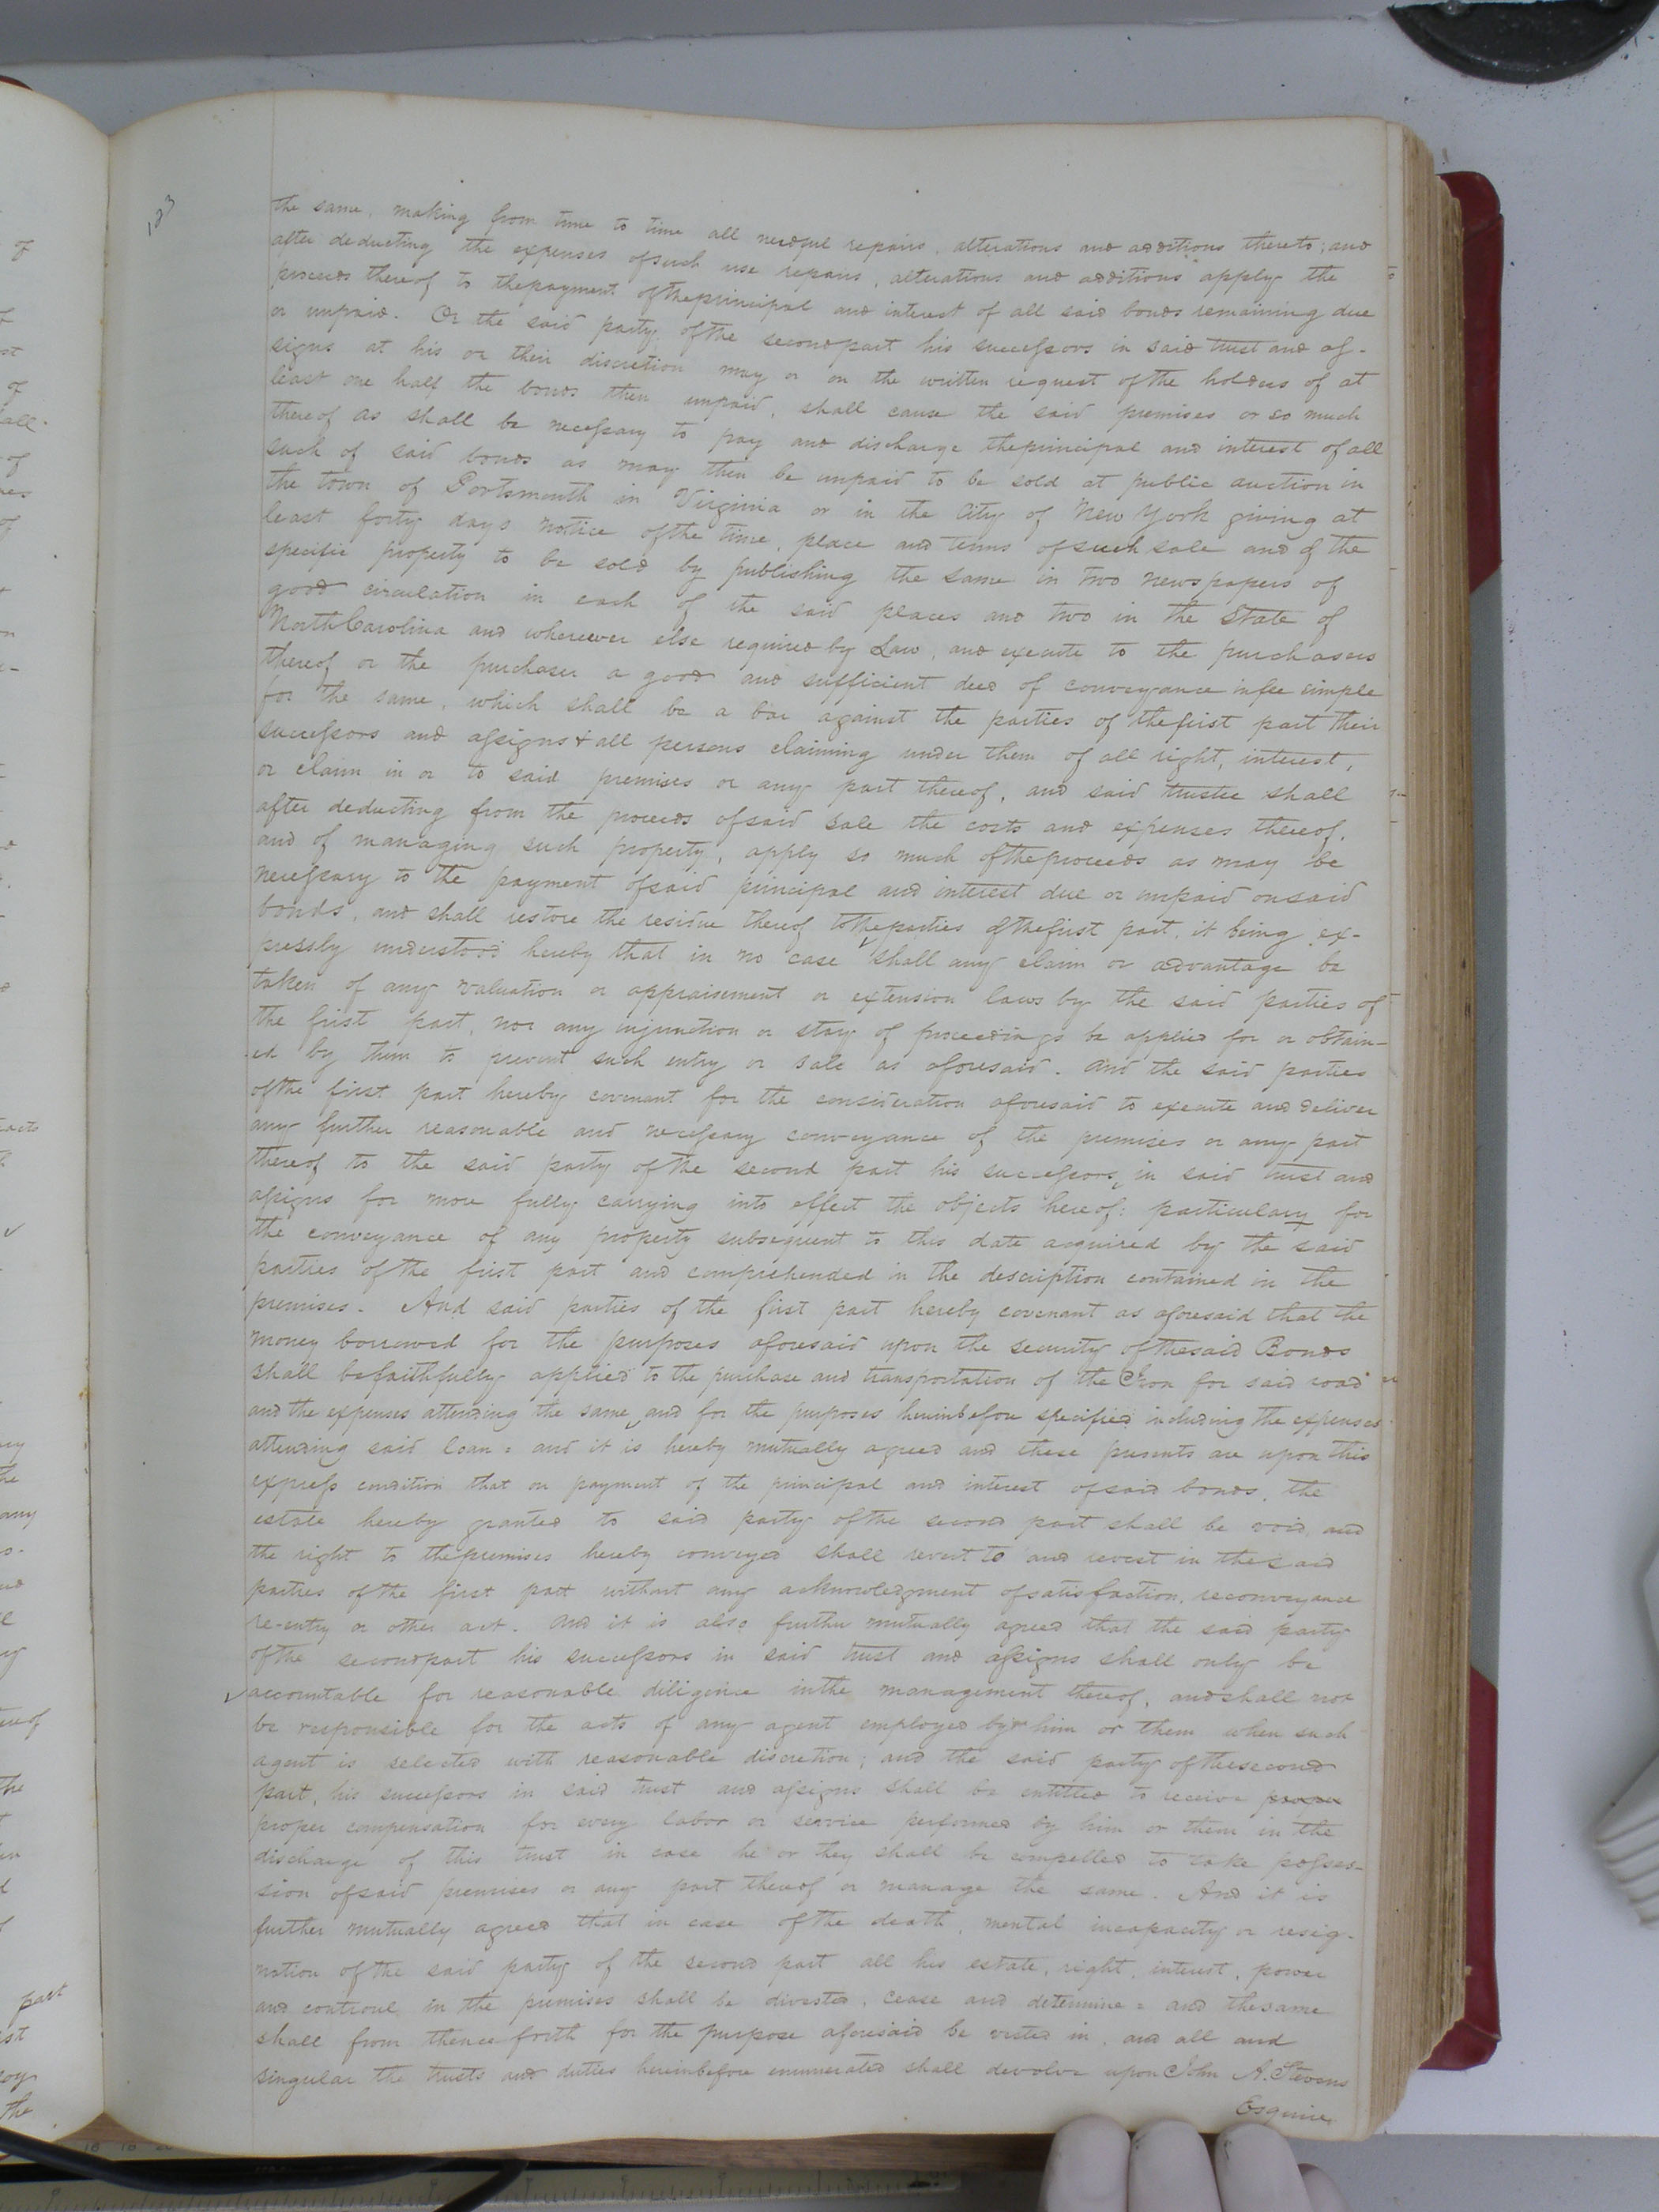 183
the same, making from time to time all needful repairs, alterations and additions thereto; and
after deducting the expenses of such use repairs, alterations and additions apply the
proceeds thereof to the payment of the principal and interest of all said bonds remaining due
or unpaid. Or the said party of the second part his successors in said trust and as-
signs at his or their discretion may or on the written request of the holders of at
least one half the bonds then unpaid, shall cause the said premises or so much
thereof as shall be necessary to pay and discharge the principal and interest of all
such of said bonds as may then be unpaid to be sold at public auction in
the town of Portsmouth in Virginia or in the City of New York giving at
least forty days notice of the time, place and terms of such sale and of the
specific property to be sold by publishing the same in two newspapers of
good circulation in each of the said places and two in the State of
North Carolina and wherever else required by Law, and execute to the purchasers
thereof or the purchaser a good and sufficient deed of conveyance in fee simple
for the same, which shall be a bar against the parties of the first part their
successors and assigns & all persons claiming under them of all right, interest,
or claim in or to said premises or any part thereof, and said trustee shall
after deducting from the proceeds of said sale the costs and expenses thereof,
and of managing such property, apply so much of the proceeds as may be
necessary to the payment of said principal and interest due or unpaid on said
bonds, and shall restore the residue thereof to the parties of the first part, it being ex-
pressly understood hereby that in no case shall any claim or advantage be
taken of any valuation or appraisement or extension laws by the said parties of
the first part, nor any injunction or stay of proceedings be applied for or obtain-
ed by them to prevent such entry or sale as aforesaid. And the said parties
of the first part hereby covenant for the consideration aforesaid to execute and deliver
any further reasonable and necessary conveyance of the premises or any part
thereof to the said party of the second part his successors, in said trust and
assigns for more fully carrying into effect the objects hereof: particulary for
the conveyance of any property subsequent to this date acquired by the said
parties of the first part and comprehended in the description contained in the
premises. And said parties of the first part hereby covenant as aforesaid that the
money borrowed for the purposes aforesaid upon the security of the said Bonds
shall be faithfully applied to the purchase and transportation of the Iron for said road
and the expenses attending the same, and for the purposes hereinbefore specified including the expenses
attending said loan: and it is hereby mutually agreed and these presents are upon this
express condition that on payment of the principal and interest of said bonds, the
estate hereby granted to said party of the second part shall be void, and
the right to the premises hereby conveyed shall revert to and revest in the said
parties of the first part without any acknowledgment of satisfaction, reconveyance
re-entry or other act. And it is also further mutually agreed that the said party
of the second part his successors in said trust and assigns shall only be
accountable for reasonable diligence in the management thereof, and shall not
be responsible for the acts of any agent employed by him or them when such
agent is selected with reasonable discretion; and the said party of the second
part, his successors in said trust and assigns shall be entitled to receive
proper compensation for every labor or service performed by him or them in the
discharge of this trust in case he or they shall be compelled to take posses-
sion of said premises or any part thereof or manage the same. And it is
further mutually agreed that in case of the death, mental incapacity or resig-
nation of the said party of the second part all his estate, right, interest, power
and controul in the premises shall be divested, cease and determine: and the same
shall from thence forth for the purpose aforesaid be vested in, and all and
singular the trusts and duties hereinbefore enumerated shall devolve upon John A. Stevens
Esquire,